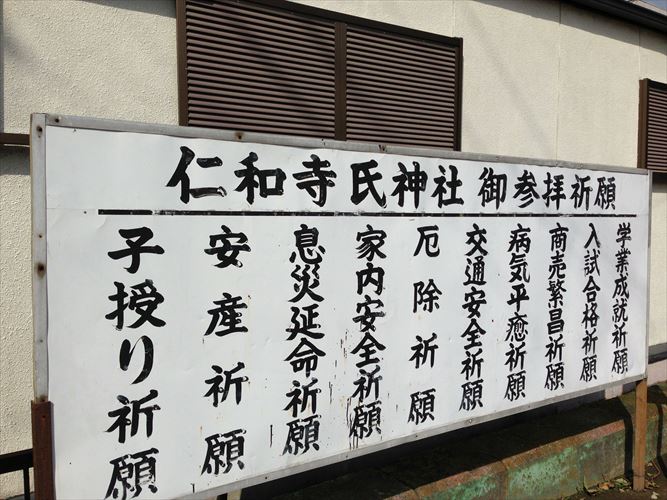 仁和寺氏神社 御参拝祈願
学業成就祈願
入試合格祈願
商売繁昌祈願
病気平癒祈願
交通安全祈願
厄除祈願
家内安全祈願
息災延命祈願
安産祈願
子授り祈願